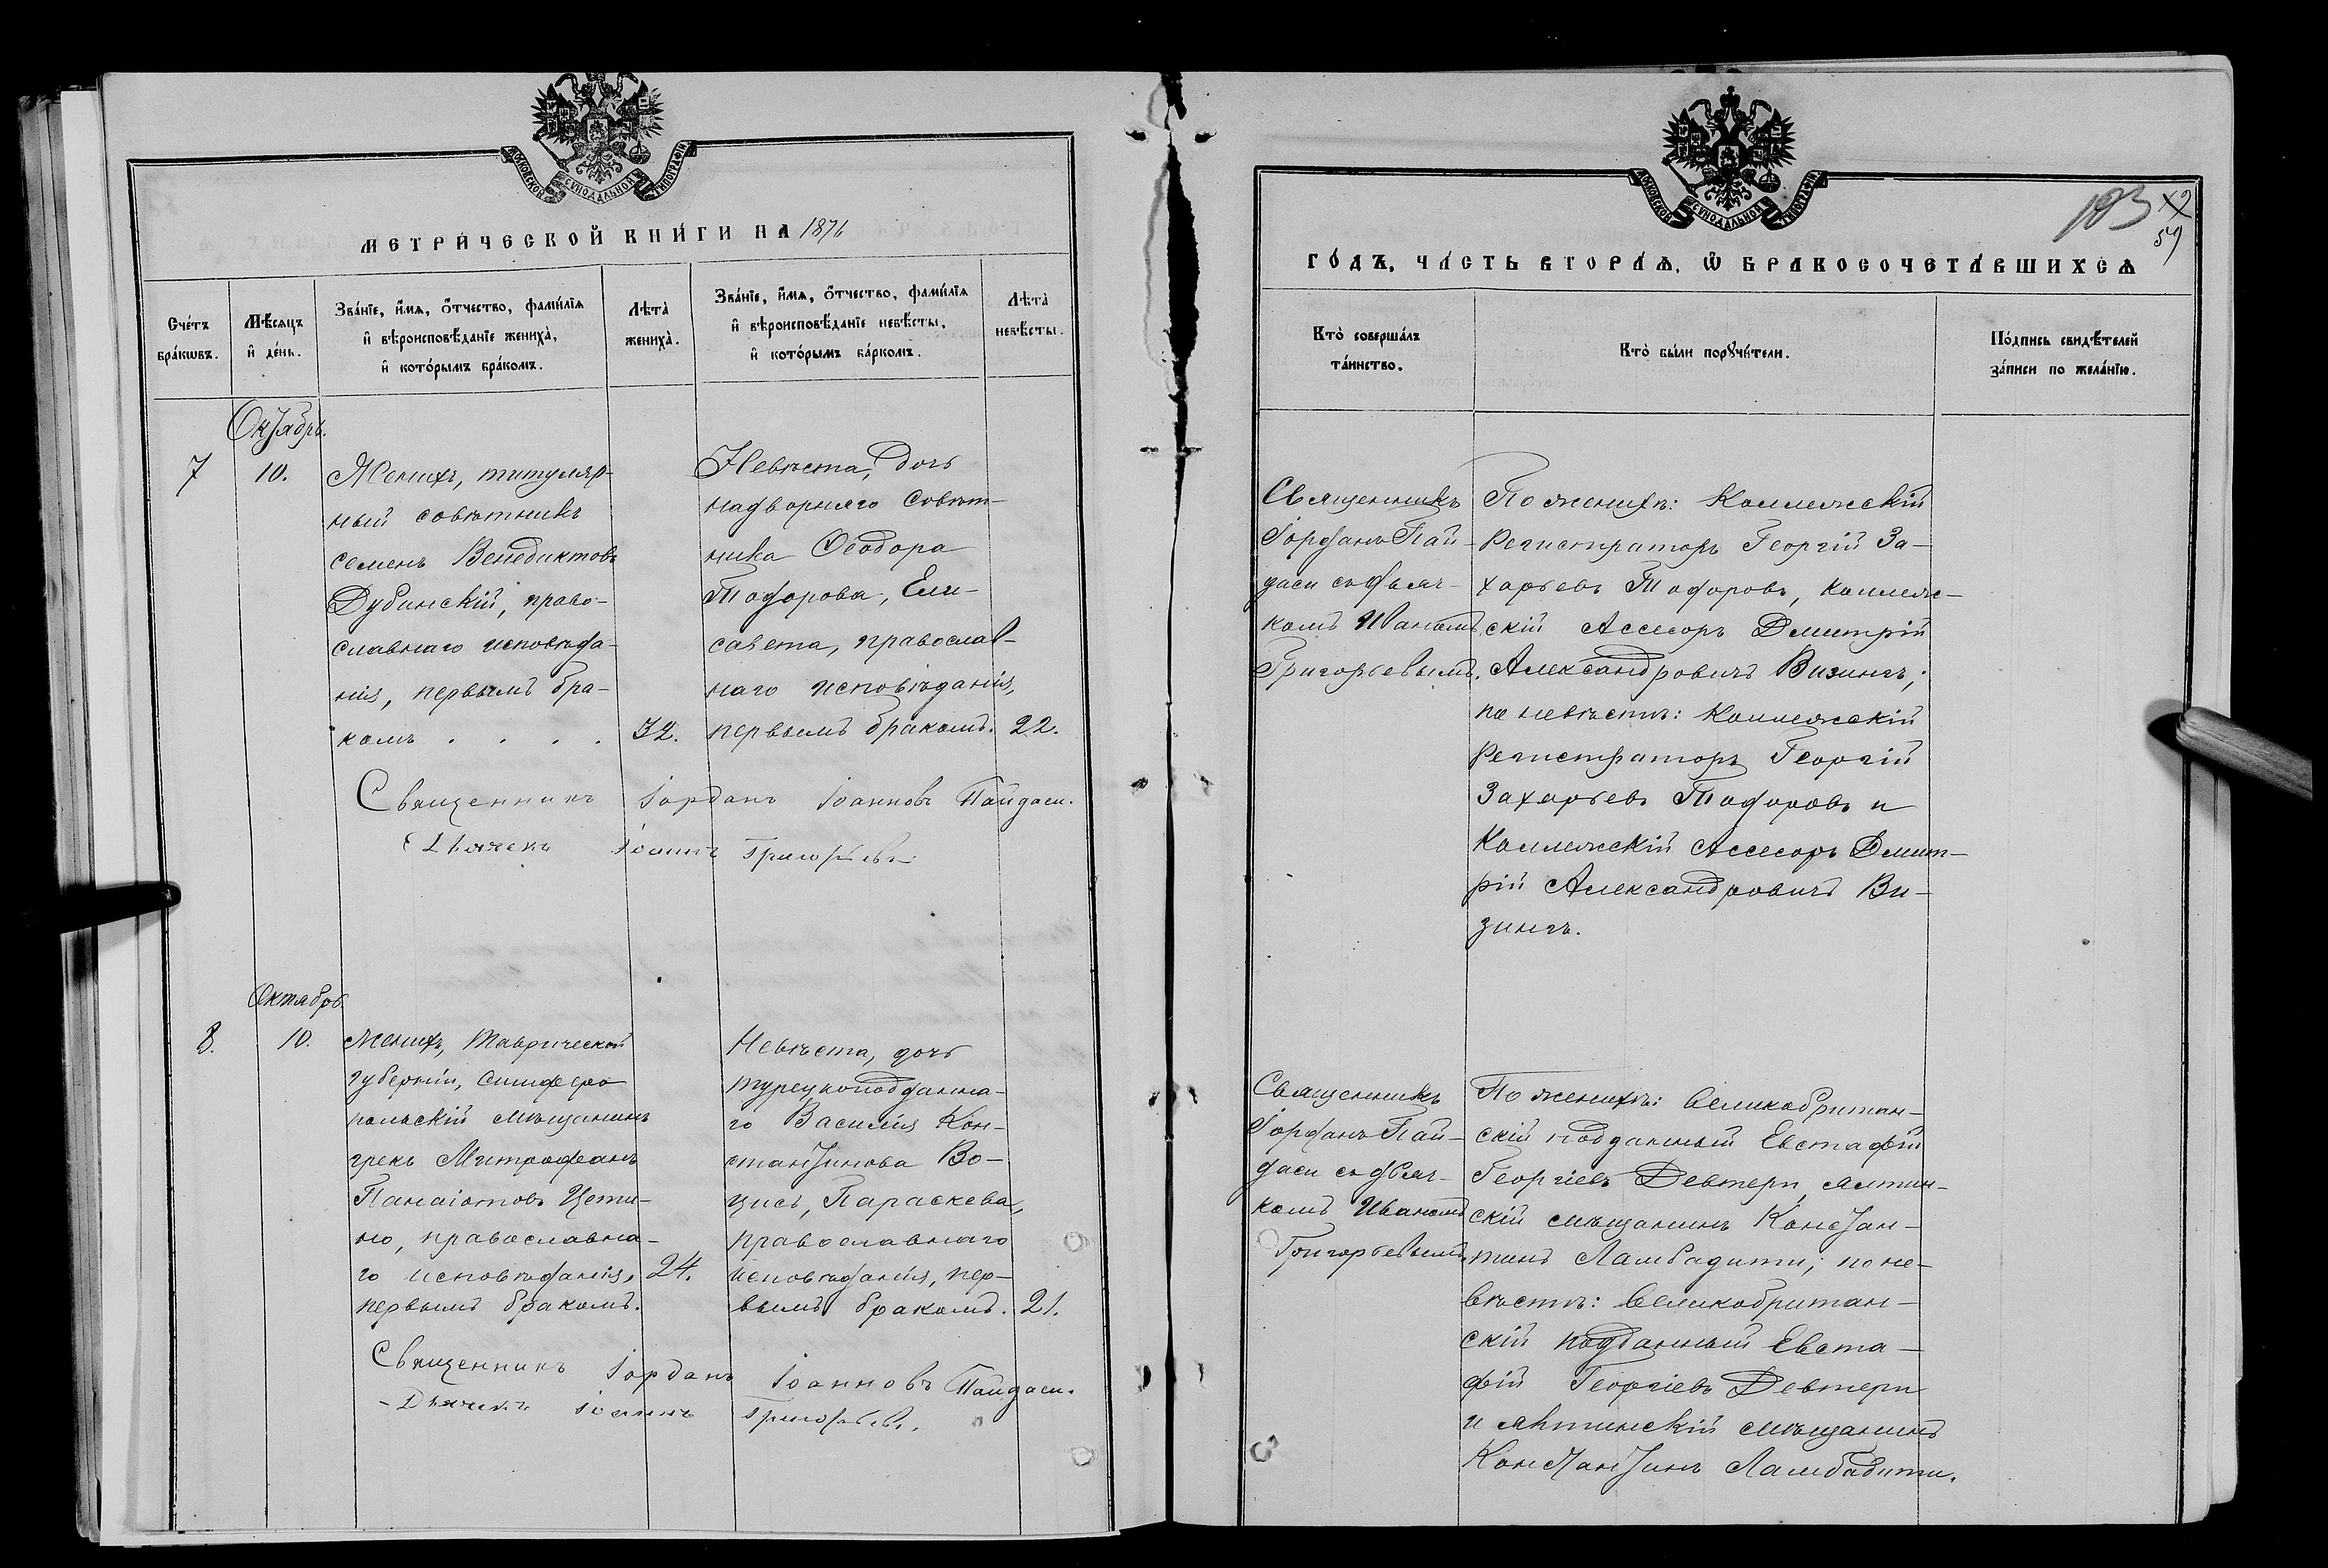 МОСКОВСКОЙ СѴНОДАЛЬНОЙ ТИПОГРАФІИ
МЕТРИ́ЧЕСКОЙ КНИ́ГИ НА 1876
Сче́тъ бра́кѡвъ.
Мѣ́сяцъ и҆ де́нь.
Зва́нїе, и҆́мѧ, о҆́тчество, фами́лїѧ
и҆ вѣроисповѣ́данїе жениха̀,
и҆ кото́рымъ бра́комъ.
Лѣ́та жениха̀.
Зва́нїе, и҆́мѧ, о҆́тчество, фами́лїѧ
и҆ вѣроисповѣ́данїе невѣ́сты,
и҆ кото́рымъ ба́ркомъ.
Лѣ́та невѣ́сты.
Октябрь.
7
10.
Женихъ, титуляр-
ный совѣтникъ
Семенъ Венедиктовъ
Дубинскій, право-
славнаго исповѣда-
нія, первымъ бра-
комъ . . . .
32.
Невѣста, дочь
надворнаго Совѣт-
ника Ѳеодора
Тодорова, Ели-
савета, православ-
наго исповѣданія,
первымъ бракомъ.
22.
Священникъ Іорданъ Іоанновъ Пайдаси.
Дьячекъ Іоаннъ Григорьевъ
Октябрь
8.
10.
Женихъ, Таврической
губерніи, Симферо
польскій мѣщанинъ
грекъ Митрофанъ
Панаіотовъ Цети-
но, православна-
го исповѣданія,
первымъ бракомъ.
24.
Невѣста, дочь
турецкоподданна-
го Василія Кон-
стантинова Во-
цисъ, Параскева,
православнаго
исповѣданія, пер-
вымъ бракомъ.
21.
Священникъ Іорданъ Іоанновъ Пайдаси.
Дьячекъ Іоаннъ Григорьевъ.
МОСКОВСКОЙ СѴНОДАЛЬНОЙ ТИПОГРАФІИ
193
59
ГО́ДЪ, ЧА́СТЬ ВТОРА́Ѧ, Ѡ҆ БРАКОСОЧЕТА́ВШИХСѦ
Кто̀ соверша́лъ
та́инство.
Кто̀ бы́ли порꙋчи́тели.
По́дпись свидѣ́телей
за́писи по жела́нїю.
Священникъ
Іорданъ Пай-
даси съ дьяч-
комъ Иваномъ
Григорьевымъ.
По женихѣ: Коллежскій
Регистраторъ Георгій За-
харьевъ Тодоровъ, коллеж-
скій Ассесоръ Дмитрій
Александровичъ Визингъ;
по невѣстѣ: Коллежскій
Регистраторъ Георгій
Захарьевъ Тодоровъ и
Коллежскій Ассесоръ Дмит-
рій Александровичъ Ви-
зингъ.
Священникъ
Іорданъ Пай-
даси съ дьяч-
комъ Иваномъ
Григорьевымъ.
По женихѣ: Великобритан-
скій подданный Евстафій
Георгіевъ Девтери, ялтин-
скій мѣщанинъ Констан-
тинъ Ламбадити; по не-
вѣстѣ: Великобритан-
скій подданный Евста-
фій Георгіевъ Девтери
и ялтинскій мѣщанинъ
Константинъ Ламбадити.